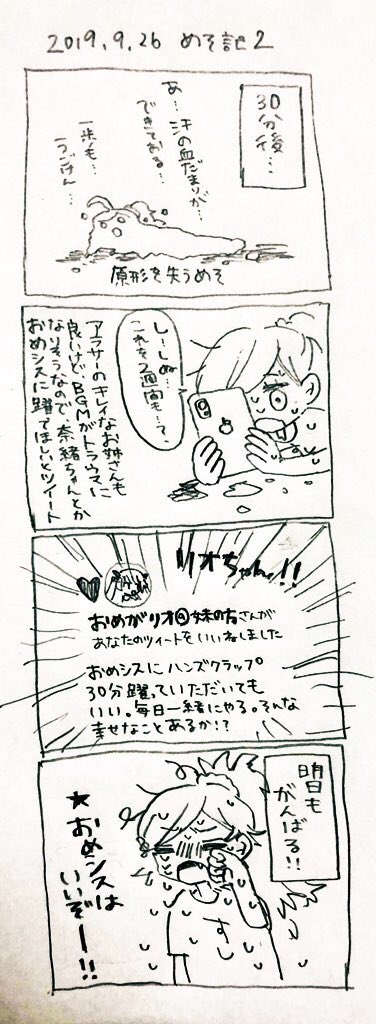 2019.9.26 めそ記2
30分後…
あ…汗の血だまりが…
できておる…
一歩も…
うごけん…
原形を失うめそ
しーしぬ…
これを2週間も…て、
アラサーのキレイなお姉さんも
良いけど、BGMがトラウマに
なりそうなので、奈緒ちゃんとか
おめシスに躍てほしいとツイート
リオちゃん!!
おめがリオ@妹の方さんが
あなたのツイートをいいねしました
おめシスにハンズクラップ
30分躍っていただいても
いい。毎日一緒にやる。そんな
幸せなことあるか!?
明日も
がんばる!!
★おめシスは
いいぞー!!
すし